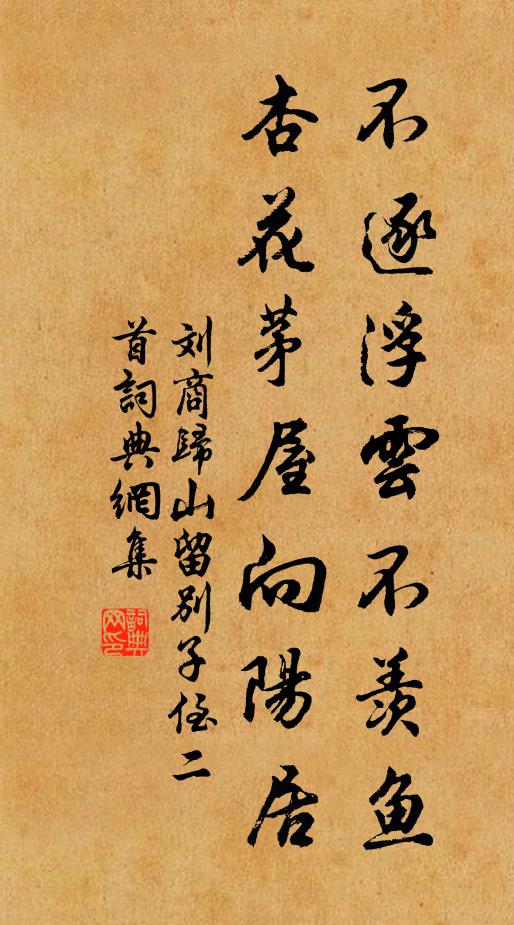 不逐浮雲不羨魚
杏花茅屋向陽居
刘商歸山留別子侄二
首詞典網集
詞典網印